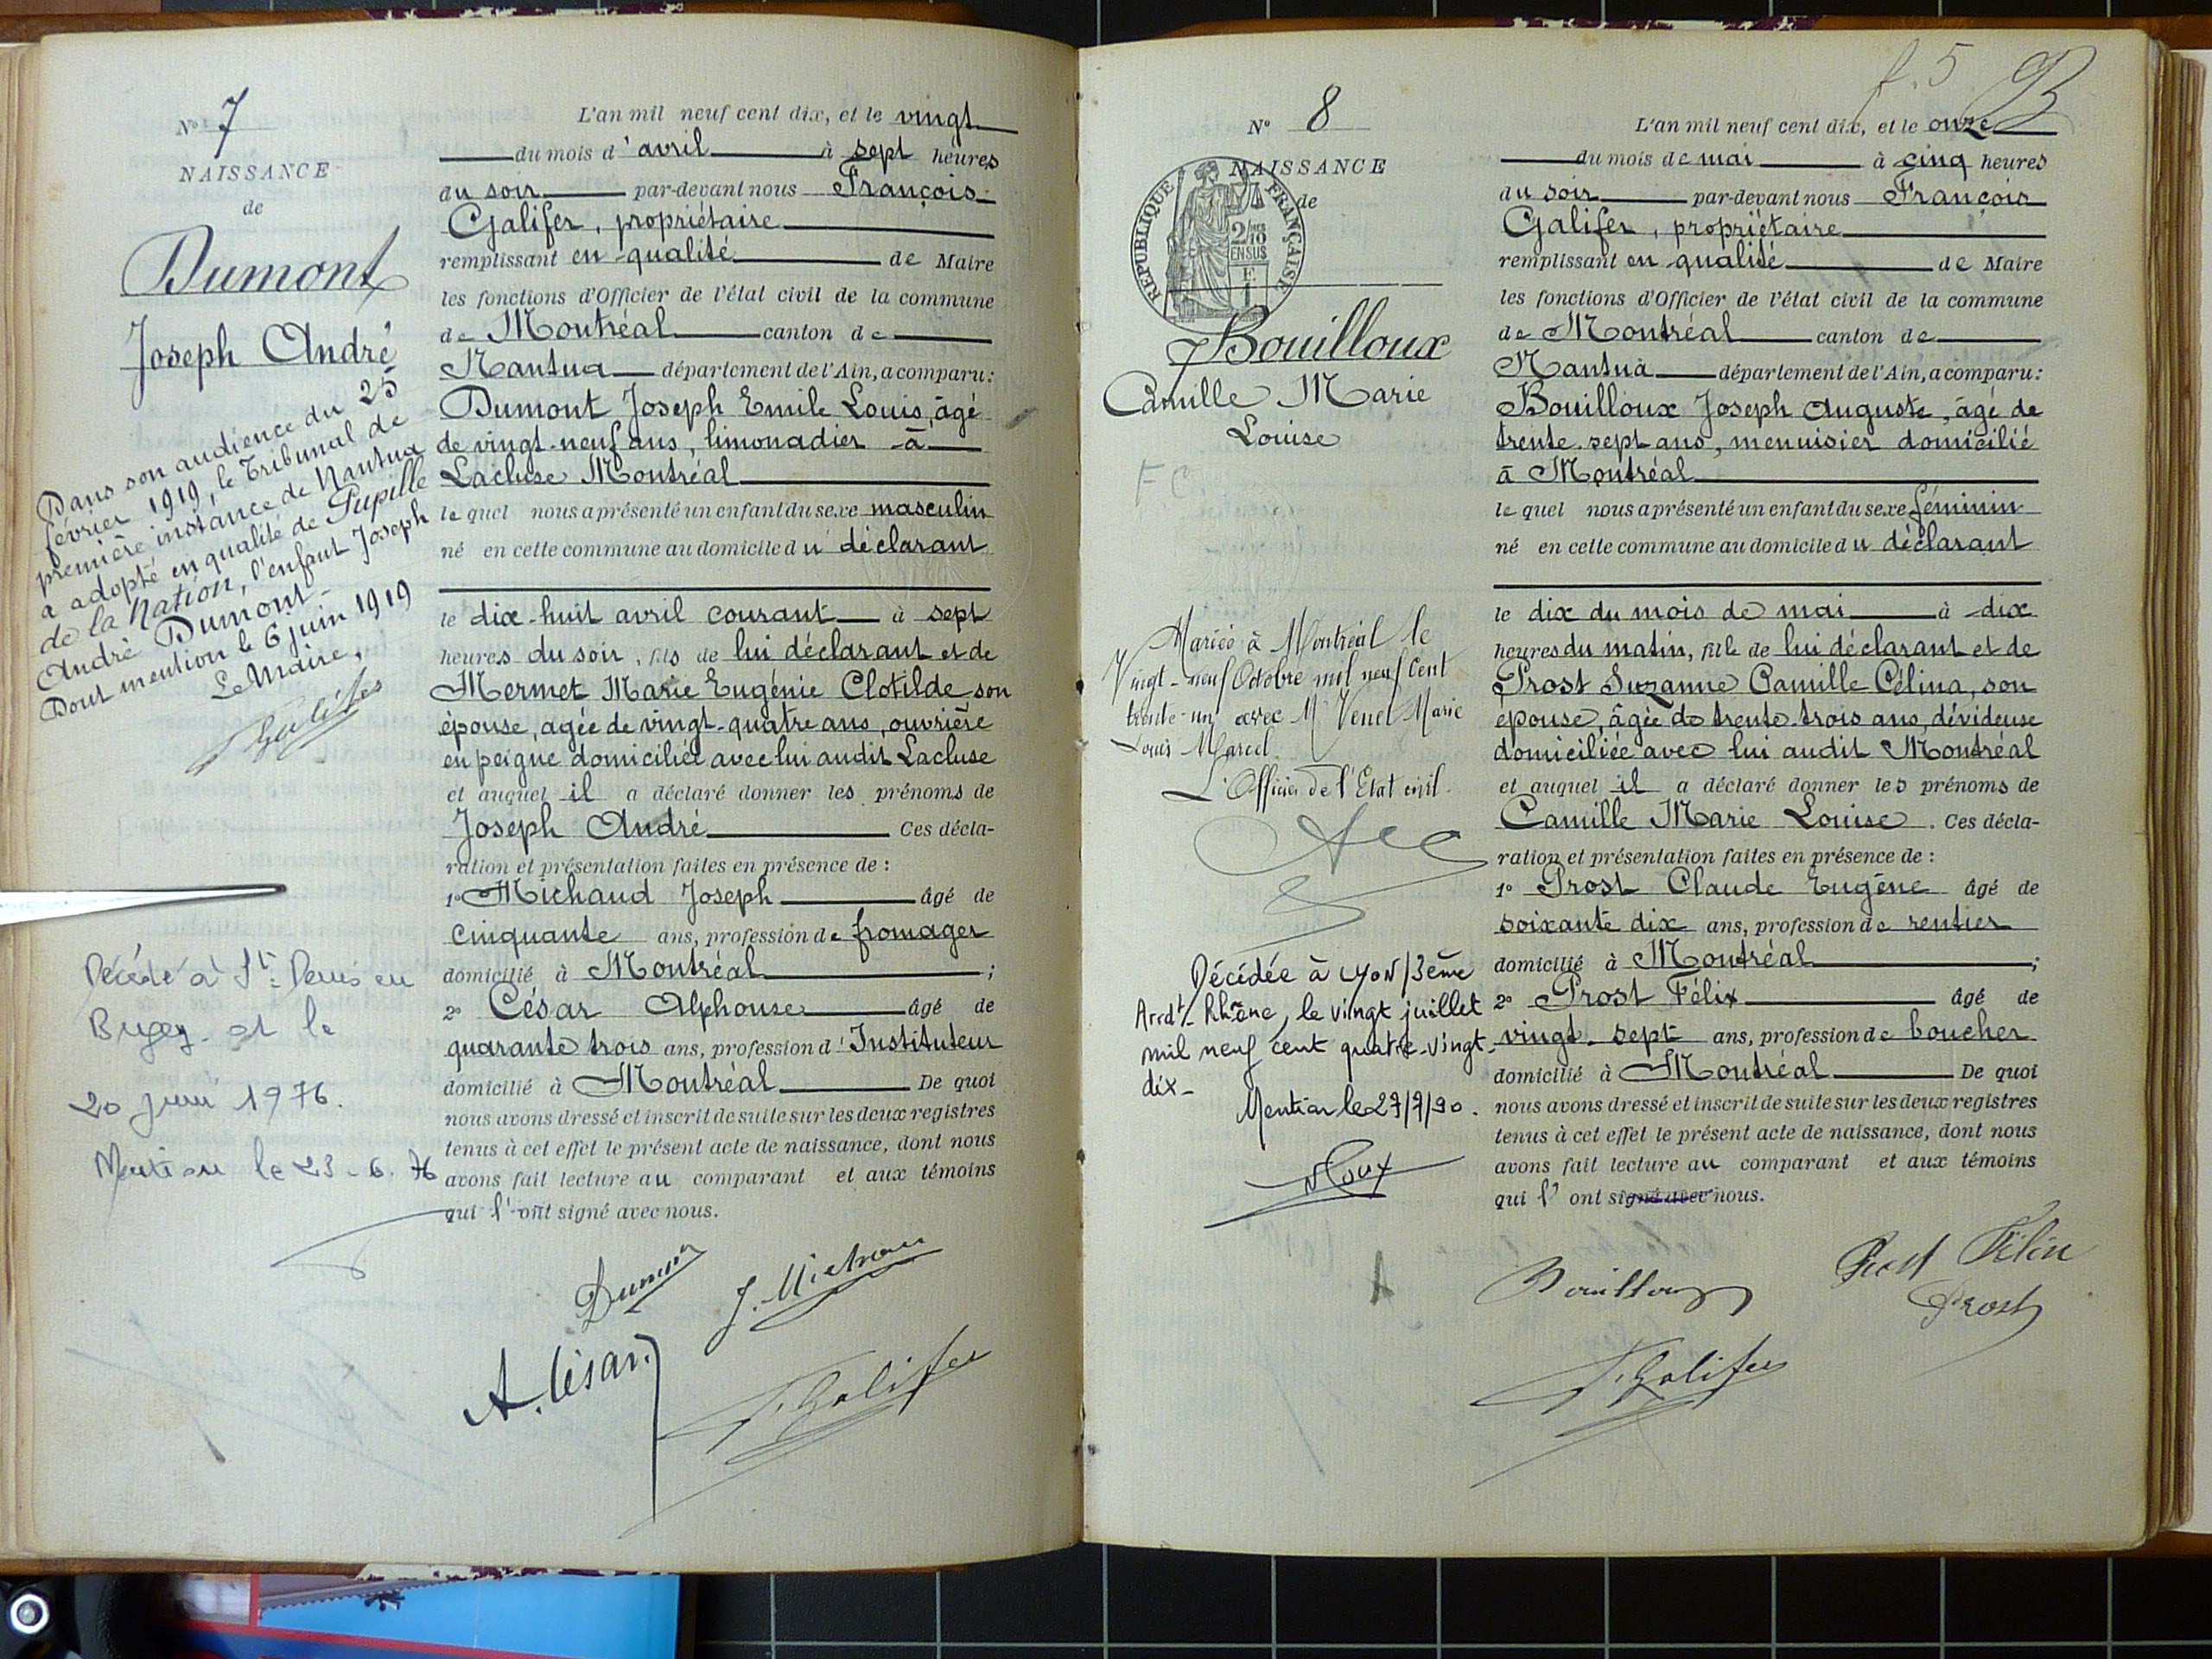 N° 7
NAISSANCE
de
Dumont
Joseph André
Dans son audience du 25
février 1919, le Tribunal de
première instance de Nantua
a adopté en qualité de Pupille
de la Nation, l'enfant Joseph
André Dumont-
Dont mention le 6 juin 1919
Le Maire,
Décédé à St: Denis en
Bugey et le
20 juin 1976.
Mention le 23-6.76
L'an mil neuf cent dix, et le vingt
du mois d'avril à sept heures
du soir par-devant nous François
Galifer, propriétaire
remplissant en qualité de Maire
les fonctions d'Officier de l'état civil de la commune
de Montréal canton de
Nantua département de l'Ain, a comparu:
Dumont Joseph Emile Louis, âgé
de vingt-neuf ans, limonadier à
Lacluse Montréal
le quel nous a présenté un enfant du sexe masculin
né en cette commune au domicile du déclarant
le dix-huit avril courant à sept
heures du soir, fils de lui déclarant et de
Mermet Marie Eugénie Clotilde son
épouse, agée de vingt-quatre ans, ouvrière
en peigne domiciliée avec lui audit Lacluse
et auquel il a déclaré donner les prénoms de
Joseph André Ces décla-
ration et présentation faites en présence de :
1° Michaud Joseph âgé de
cinquante ans, profession de fromager
domicilié à Montréal ;
2° César Alphonse âgé de
quarante trois ans, profession d'Instituteur
domicilié à Montréal De quoi
nous avons dressé et inscrit de suite sur les deux registres
tenus à cet effet le présent acte de naissance, dont nous
avons fait lecture au comparant et aux témoins
qui l'ont signé avec nous.
Dumont
J. Michaud
A. César.
F. Galifer
f. 5 B
N° 8
NAISSANCE
de
REPUBLIQUE FRANÇAISE
2/10
EN SUS
Bouilloux
Camille Marie
Louise
Mariée à Montréal le
Vingt-neuf Octobre mil neuf cent
trente-un avec M Venet Marie
Louis Marcel.
L'Officier de l'Etat civil.
Décédée à LYON/3ème
Arrdt/- Rhône, le vingt juillet
mil neuf cent quatre-vingt-
dix-
Mention le 27/7/90.
L'an mil neuf cent dix, et le onze
du mois de mai à cinq heures
du soir par-devant nous François
Galifer, propriétaire
remplissant en qualité de Maire
les fonctions d'Officier de l'état civil de la commune
de Montréal canton de
Nantua département de l'Ain, a comparu:
Bouilloux Joseph Auguste, âgé de
trente-sept ans, menuisier domicilié
à Montréal
le quel nous a présenté un enfant du sexe féminin
né en cette commune au domicile du déclarant
le dix du mois de mai à dix
heures du matin, fille de lui déclarant et de
Prost Suzanne Camille Célina, son
épouse, âgée de trente-trois ans, dévideuse
domiciliée avec lui audit Montréal
et auquel il a déclaré donner les prénoms de
Camille Marie Louise. Ces décla-
ration et présentation faites en présence de :
1° Prost Claude Eugène âgé de
soixante dix ans, profession de rentier
domicilié à Montréal ;
2° Prost Félix âgé de
vingt-sept ans, profession de boucher
domicilié à Montréal De quoi
nous avons dressé et inscrit de suite sur les deux registres
tenus à cet effet le présent acte de naissance, dont nous
avons fait lecture au comparant et aux témoins
qui l'ont signé avec nous.
Bouilloux
Prost Félix
Prost
F. Galifer